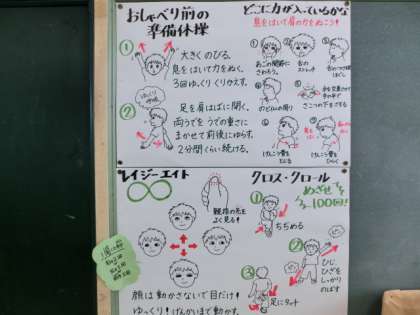 おしゃべり前の
準備体操
① 大きくのびる。
息をはいて力をぬく。
3回ゆっくりくりかえす。
② 足を肩はばに開く。
両うでをうでの重さに
まかせて前後にゆらす。
2分間くらい続ける。
どこに力が入っているかな
息をはいて肩の力をぬこう!
あごの関節に
さわろう。
舌の
ストレッチ
のどぶえの周り
けんこう骨を
とじる
けんこう骨を
ひらく
レイジーエイト
親指の先を
よく見る!
顔は動かさないで目だけ!
ゆっくり!げんかいまで動かす。
クロス・クロール
めざせ
100回!
①
ちぢめる
②
ひじ
ひざを
しっかり
のばす
③
足にタッチ